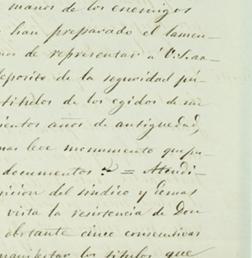 manos de los enemigos
han preparado el lamen-
de representar á V.
deposito de la seguridad pú-
titulos de los egidos de su
cientos años de antiguedad,
mas leve monumento que pu-
documentos = Atendi-
sicion del sindico y demas
vista la resistencia de Don
obstante cinco consecutivas
manifestar los titulos que